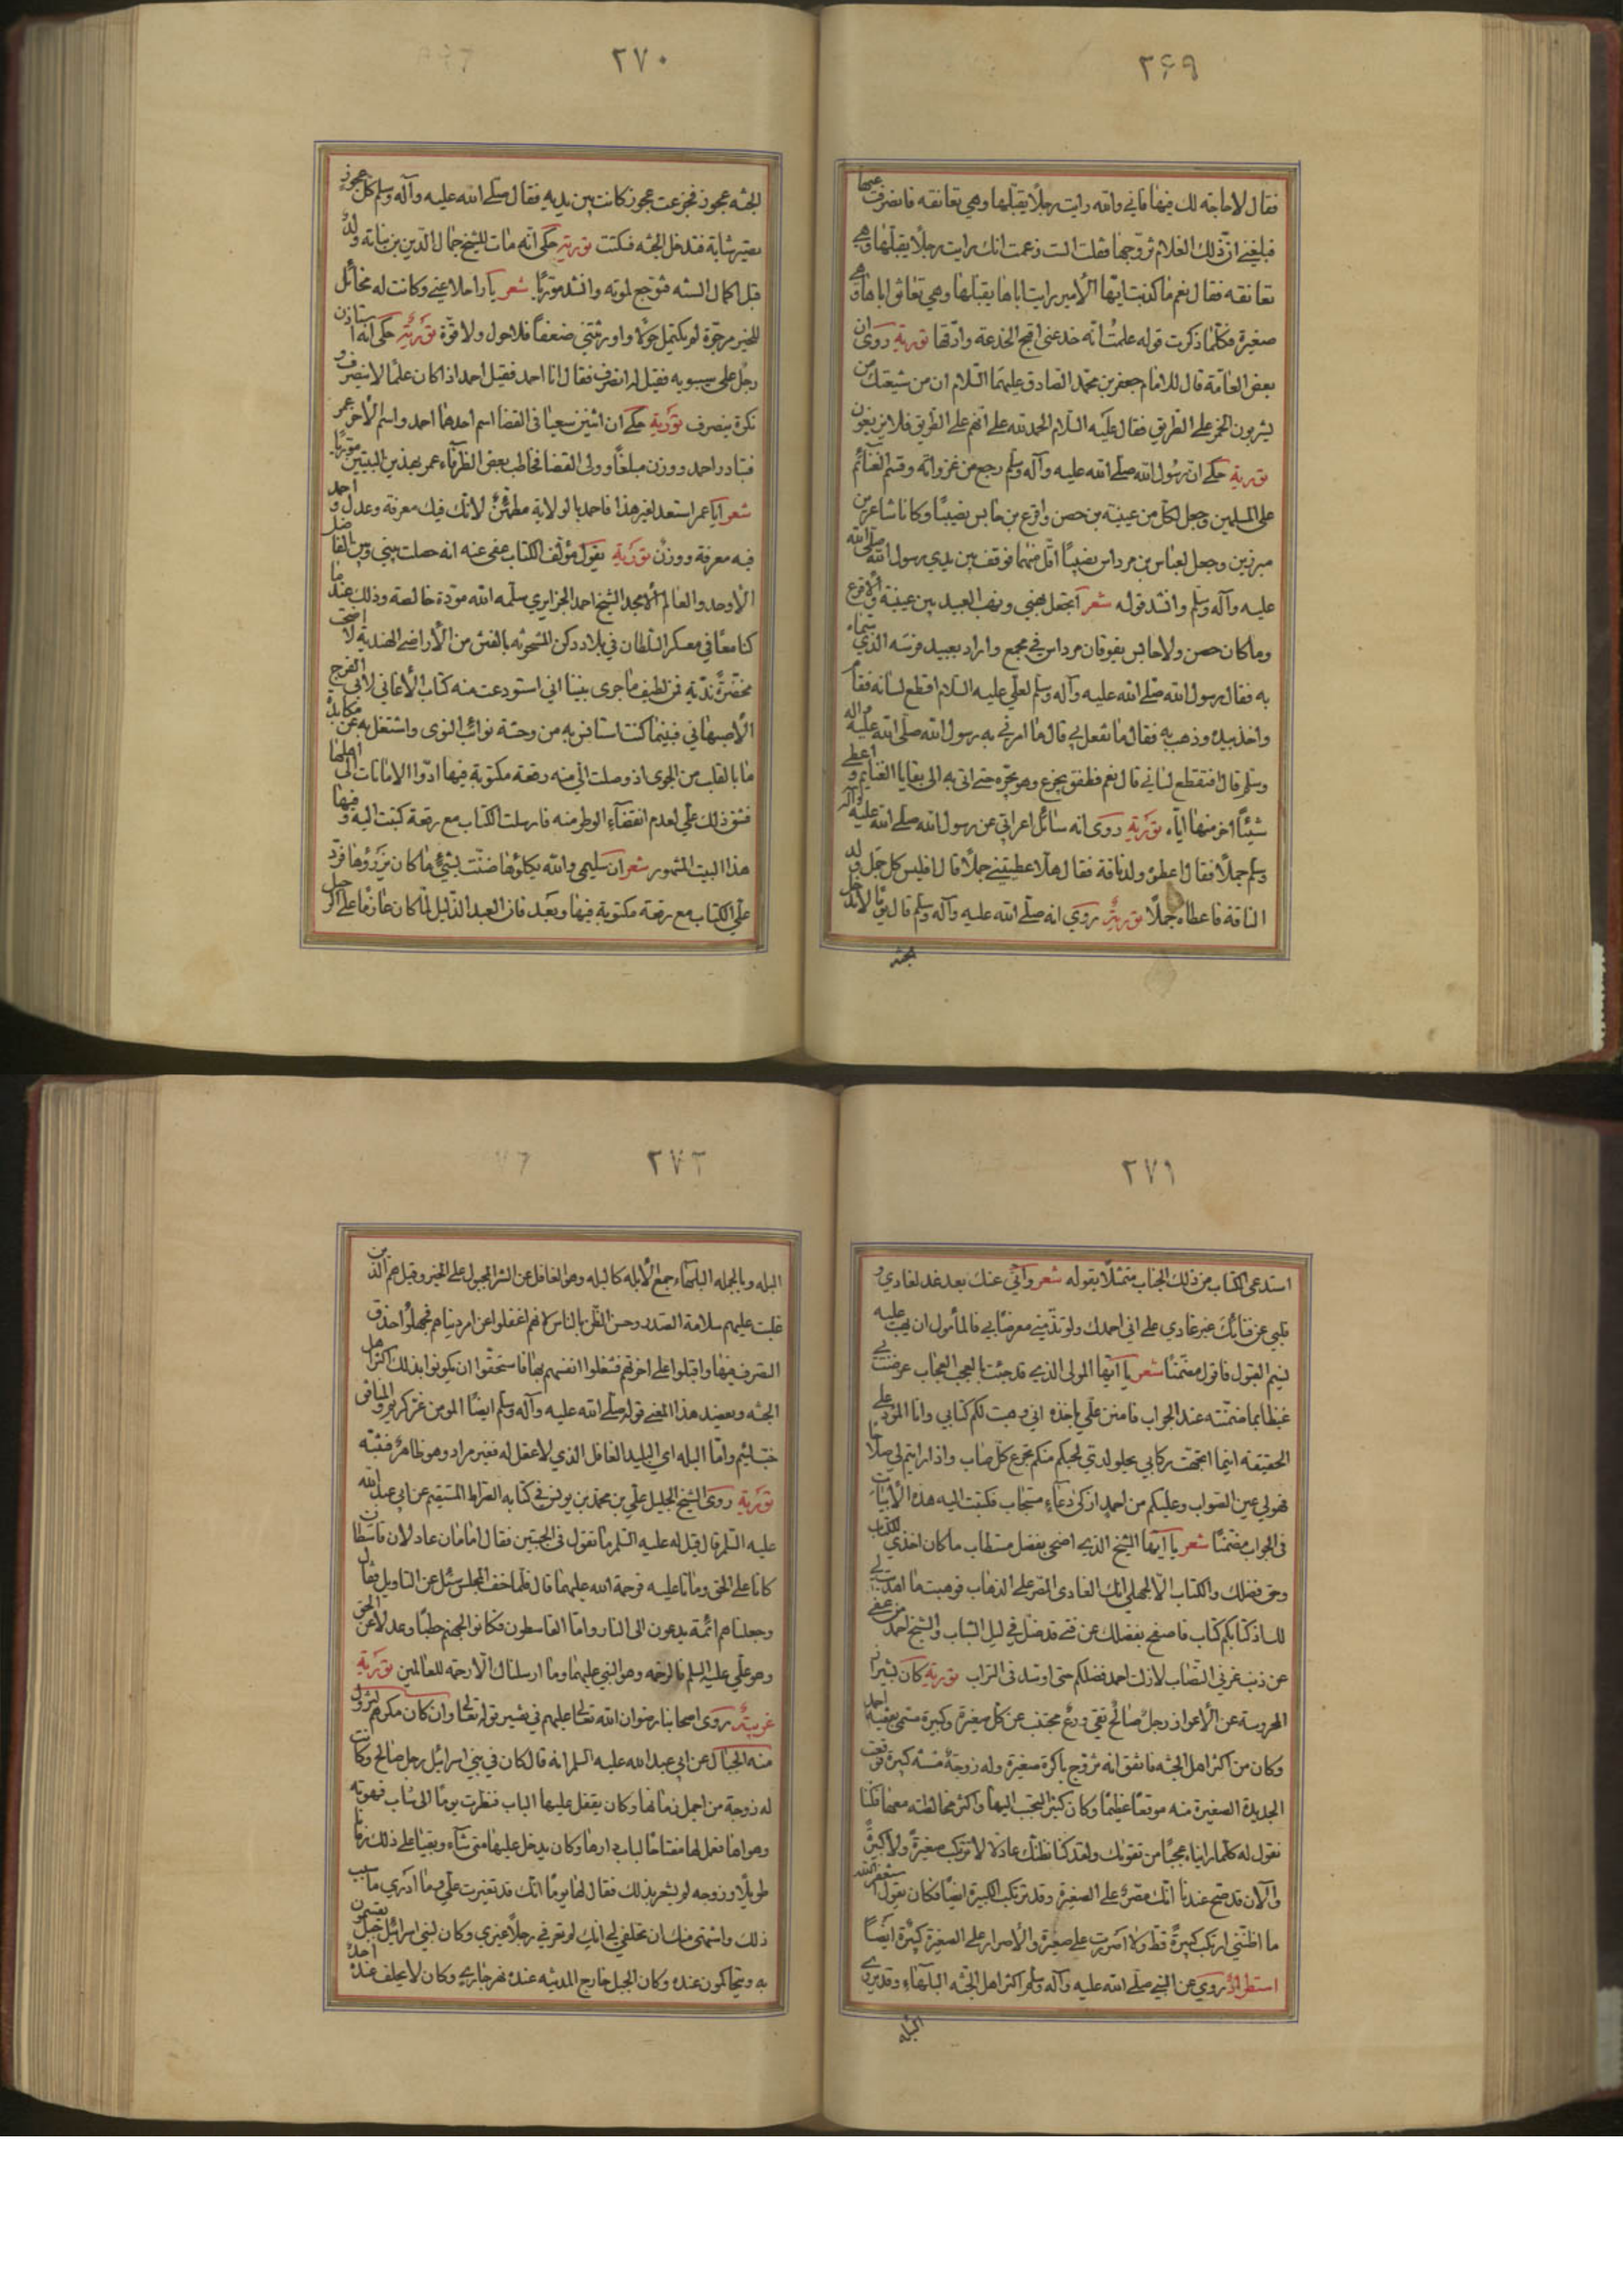 ٢٦٩
فقال لا حاجة لك فيها فاني والله رايت رجلاً يقبّلها وهي تعانقه فانصرفت عنها
فبلغني انّ ذلك الغلام تزوّجها فقلت الست زعمت انك رايت رجلاً يقبلها وهي
تعانقه فقال نعم ما كذبت ايّها الأمير رايت اباها يقبلها وهي تعانق اباها وهي
صغيرة فكلّما ذكرت قوله علمتُ انّه خدعني اقبح الخدعة وادقها تورية روى ان
بعض العامّة قال للامام جعفر بن محمّد الصادق عليهما السّلام ان من شيعتك من
يشربون الخمر على الطريق فقال عليه السّلام الحمد لله على انّهم على الطّريق فلا يزيغون
تورية حكى ان رسول الله صلّى الله عليه وآله وسلّم رجع من غزواته وقسم الغنائم
على المسلمين وجعل لكل من عيينة بن حصن واقرع بن حابس نصيبًا وكانا شاعرين
مبرزين وجعل لعباس بن مرداس نصيبًا اقلّ منهما فوقف بين يدي رسول الله صلى الله
عليه وآله وسلّم وانشد قوله شعر اتجعل نهبي ونهب العبيد بين عيينة والاقرع
وما كان حصن ولا حابس يفوقان مرداس في مجمع واراد بعبيد فرسه الذي سمّاه
به فقال رسول الله صلّى الله عليه وآله وسلّم لعلّي عليه السّلام اقطع لسانه فقام
واخذ بيده وذهب به فقال ما تفعل بي قال ما امرني به رسول الله صلّى الله عليه وآله
وسلّم قال افتقطع لساني قال نعم فطفق يجزع وهو يجرّه حتى اتى به الى بقايا الغنايم واعطى
شيئًا اخر منها ايّاه تورية روى انه سائل اعرابيّ عن رسول الله صلّى الله عليه وآله
وسلّم جملاً فقال اعطوه ولد ناقة فقال هلّا اعطيتني جملاً قال افليس كل جمل ولد
الناقة فاعطاه جملاً تورية روى انه صلّى الله عليه وآله وسلّم قال يومًا لا تدخل
الجنّة
٢٧٠
الجنّة عجوز فجزعت عجوز كانت بين يديه فقال صلّى الله عليه وآله وسلم كل عجوز
تصير شابة فتدخل الجنّة فسكتت تورية حكى انّه مات للشيخ جمال الدّين بن نباته ولد
قبل اكمال السنة فتوجع لموته وانشد مورّيًا شعر يا راحلا عني وكانت له مخائل
للخير مرجّوة لم يكتمل حولا واورثتني ضعفًا فلا حول ولا قوّة تورية حكى انّه استاذن
رجل على سيبويه فقيل له انصرف فقال انا احمد فقيل احمد اذا كان علمًا لا ينصرف و
نكرة ينصرف تورية حكى ان اثنين سعيا في القضا اسم احدهما احمد واسم الآخر عمر
فبادر احمد ووزن مبلغًا وولى القضا فخاطب بعض الظرفاء عمر بهذين البيتين مورّيًا
شعر ايا عمر استعد لغير هذا فاحمد بالولاية مطمئنّ لانّك فيك معرفة وعدل و احمد
فيه معرفة ووزن تورية يقول مؤلّف الكتاب عفى عنه انه حصلت بيني وبين الفاضل
الأوحد والعالم الأمجد الشيخ احمد الجزايري سلّمه الله مودّة خالصة وذلك عند ما
كنا معًا في معسكر السّلطان في بلاد دكن المشحونة بالفتن من الأراضي الهندية لا اضحت
مخضرّة نديّة فمن لطيف ما جرى بيننا اني استودعت منه كتاب الأغاني لابي الفرج
الأصبهاني فبينما كنت استانس به من وحشة نوائب النوى واشتغل به عن مكابدة
ما بالقلب من الجوى اذ وصلت الّي منه رقعة مكتوبة فيها ادّوا الامانات الى اهلها
فشق ذلك علّي لعدم انقضاء الوطر منه فارسلت الكتاب مع رقعة كتبت اليه وفيها
هذا البيت المشهور شعر ان سليمى والله يكلؤها ضنّت بشئ ما كان يرزؤها فردّ
علّي الكتاب مع رقعة مكتوبة فيها وبعد فان العبد الذّليل لمّا كان عازمًا على الرحيل
٢٧١
استدعى الكتاب من ذلك الجناب متمثلاً بقوله شعر واني عنك بعد غد لغادي و
قلبي عن فنائك غير غادي على اني احمدك ولو تذمّني معرضًا بي فالمأمول ان يهب عليه
نسيم القبول فاقول مضمّنًا شعر يا ايّها المولى الذي قد جئت بالعجب العجاب عرضت بي
غيظا بما ضمّنته عند الجواب فامنن علّي باخذه اني وهبت لكم كتابي وانا المؤدّي على
الحقيقة اينما اتجهت ركابي يحلو لدتي لحبكم منكم تجرع كل صاب واذا رايتم لي خطا
فهو لي عين الصّواب وعليكم من احمد ازكى دعاء مستجاب فكتبت اليه هذه الأبيات
في الجواب مضمّنًا شعر يا ايّها الشيخ الذي اضحى بفضل مستطاب ما كان اخذي للكتاب
وحق فضلك والكتاب الّا لجهلي انك الغادي المصرّ على الذهاب فوهبت ما اهديت لي
كتابكم كتاب فاصفح بفضلك عن فتى قد ضل في ليل الشباب والشيخ احمد من عفى
عن ذنب غرّ في النصاب لا زلت احمد فضلكم حتى اوسّد في التراب تورية كان بشيراز
المحروسة عن الأعواز رجل صالح تقي ورع مجتنب عن كل صغيرة وكبيرة مسمّى بفقيه احمد
وكان من اكثر اهل الجنّة فاتفق انه تزوّج باكرة صغيرة وله زوجة مسنّة كبيرة فوقعت
الجديدة الصغيرة منه موقعًا عظيمًا وكان كثير التحبّب اليها واكثر مخالطته معها فكنا
نقول له كلّما رايناه عجبًا من تقويك ولقد كنا نظنّك عادلا لا ترتكب صغيرة ولا كبيرة
والآن قد صحّ عندنا انّك مصّر على الصغيرة وقد ترتكب الكبيرة ايضًا فكان يقول استغفر الله
ما اظنّني ارتكب كبيرةً قط ولا اصررت على صغيرة والأصرار على الصغيرة كبيرة ايضًا
استطراد روى عن النبي صلّى الله عليه وآله وسلّم اكثر اهل الجنّة البلهاء وقد يروى
البله
٢٧٢
البله وبالجملة البلهاء جمع الأبله كالبله وهو الغافل عن الشر المجبول على الخير وقيل هم الّذين
غلبت عليهم سلامة الصّدر وحسن الظّن بالناس لانهم اغفلوا عن امر دنياهم فجهلوا حذق
التصرف فيها واقبلوا على اخرتهم فشغلوا انفسهم بها فاستحقّوا ان يكونوا بذلك اكثر اهل
الجنّة ويعضد هذا المعنى قوله صلّى الله عليه وآله وسلّم ايضًا المؤمن غرّ كريم والمنافق
خبّ لئيم وامّا البله اي البليد الغافل الذي لا عقل له فغير مراد وهو ظاهر فتنبّه
تورية روى الشيخ الجليل علّي بن محمّد بن يونس في كتابه الصراط المستقيم عن ابي عبد الله
عليه السّلم قال قيل له عليه السّلم ما تقول في الجبتين فقال امامان عادلان قاسطان
كانا على الحق وماتا عليه فرحمة الله عليهما قال فلّما خف المجلس سُئل عن التاويل فقال
وجعلناهم ائمّة يدعون الى النار وامّا القاسطون فكانوا لجهنم حطبًا وعدلا عن الحق
وهو علّي عليه السّلم فالرحمة وهو النبي عليهما وما ارسلناك الّا رحمة للعالمين تورية
غريبة روى اصحابنا رضوان الله تعالى عليهم في تفسير قوله تعالى وان كان مكرهم لتزول
منه الجبال عن ابي عبد الله عليه السلم انه قال كان في بني اسرائيل رجل صالح وكانت
له زوجة من اجمل زمانها وكان يقفل عليها الباب فنظرت يومًا الى شاب فهوته
وهواها فعمل لها مفتاحًا لباب دارها وكان يدخل عليها متى شآء وبقيا على ذلك زمانا
طويلاً وزوجها لم يشعر بذلك فقال لها يومًا انّك قد تغيّرت علّي وما ادري ما سبب
ذلك واشتهى منك ان تحلفي لي انك لم تعرفي رجلاً غيري وكان لبني اسرائيل جبل يقسمون
به ويتحاكمون عنده وكان الجبل خارج المدينة عنده نهر جاري وكان لا يحلف عنده احد